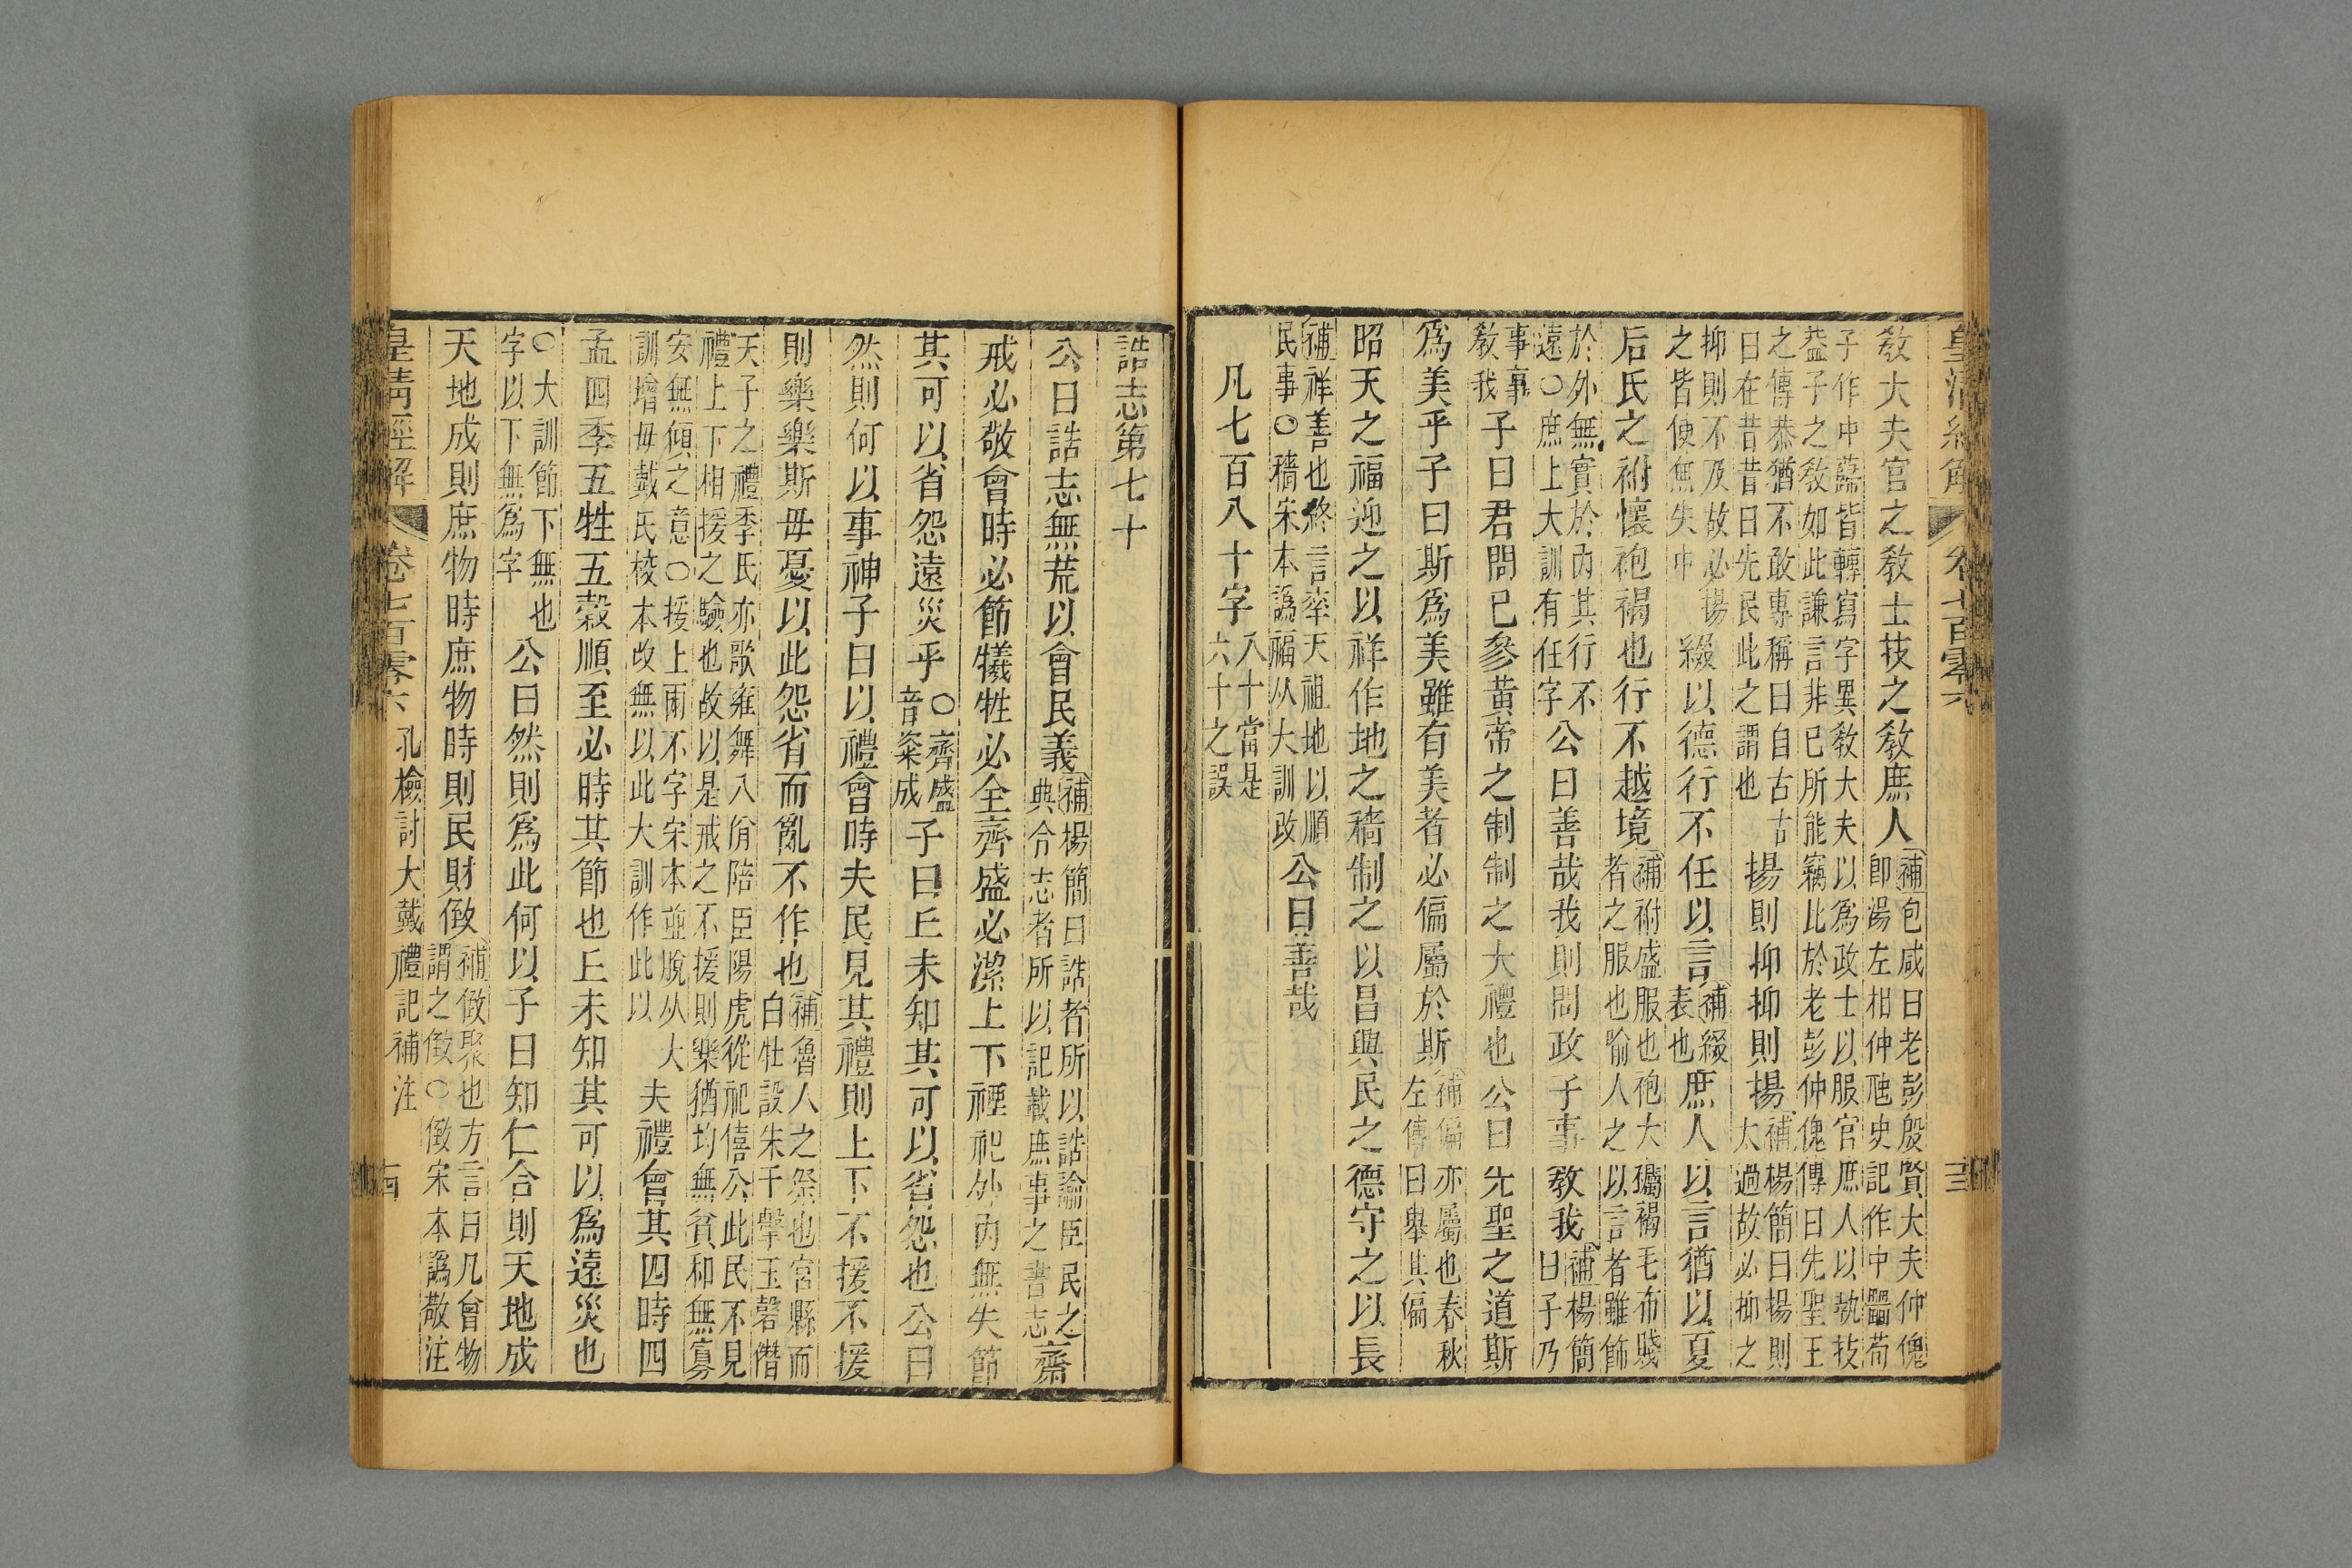 皇清經解 卷七百零六 三
敎大夫官之敎士技之敎庶人補包咸曰老彭殷賢大夫仲傀
卽湯左相仲虺史記作中䚾荀
子作中蘬皆轉寫字異敎大夫以爲政士以服官庶人以執技
葢子之敎如此謙言非已所能竊比於老彭仲傀傳曰先聖王
之傳恭猶不敢專稱曰自古古
曰在昔昔曰先民此之謂也揚則抑抑則揚補楊簡曰揚則
太過故必抑之
抑則不及故必揚
之皆使無失中綴以德行不任以言補綴
表也庶人以言猶以夏
后氏之祔懷袍褐也行不越境補祔盛服也袍大襡褐毛布賤
者之服也喻人之以言者雖飾
於外無實於內其行不
遠○庶上大訓有任字公曰善哉我則問政子事敎我補楊簡
曰子乃
事事
敎我子曰君問已參黃帝之制制之大禮也公曰先聖之道斯
爲美乎子曰斯爲美雖有美者必偏屬於斯補偏亦屬也春秋
左傳曰舉其偏
昭天之福迎之以祥作地之穡制之以昌興民之德守之以長
補祥善也終言率天祖地以順
民事○穡宋本譌福从大訓改公曰善哉
凡七百八十字八十當是
六十之誤
誥志第七十
公曰誥志無荒以會民義補楊簡曰誥者所以誥諭臣民之
典令志者所以記載庶事之書志齋
戒必敬會時必節犧牲必全齊盛必潔上下禋祀外內無失節
其可以省怨遠災乎○齊盛
音粢成子曰丘未知其可以省怨也公曰
然則何以事神子曰以禮會時夫民見其禮則上下不援不援
則樂樂斯毋憂以此怨省而亂不作也補魯人之祭也宮縣而
白牡設朱干擊玉磬僭
天子之禮季氏亦歌雍舞八佾陪臣陽虎從祀僖公此民不見
禮上下相援之驗也故以是戒之不援則樂猶均無貧和無寡
安無傾之意○援上兩不字宋本並脫从大
訓增毋戴氏校本改無以此大訓作此以夫禮會其四時四
孟四季五牲五穀順至必時其節也丘未知其可以爲遠災也
○大訓節下無也
字以下無爲字公曰然則爲此何以子曰知仁合則天地成
天地成則庶物時庶物時則民財儆補儆聚也方言曰凡會物
謂之儆○儆宋本譌敬注
皇清經解 卷七百零六 孔檢討大戴禮記補注 十四